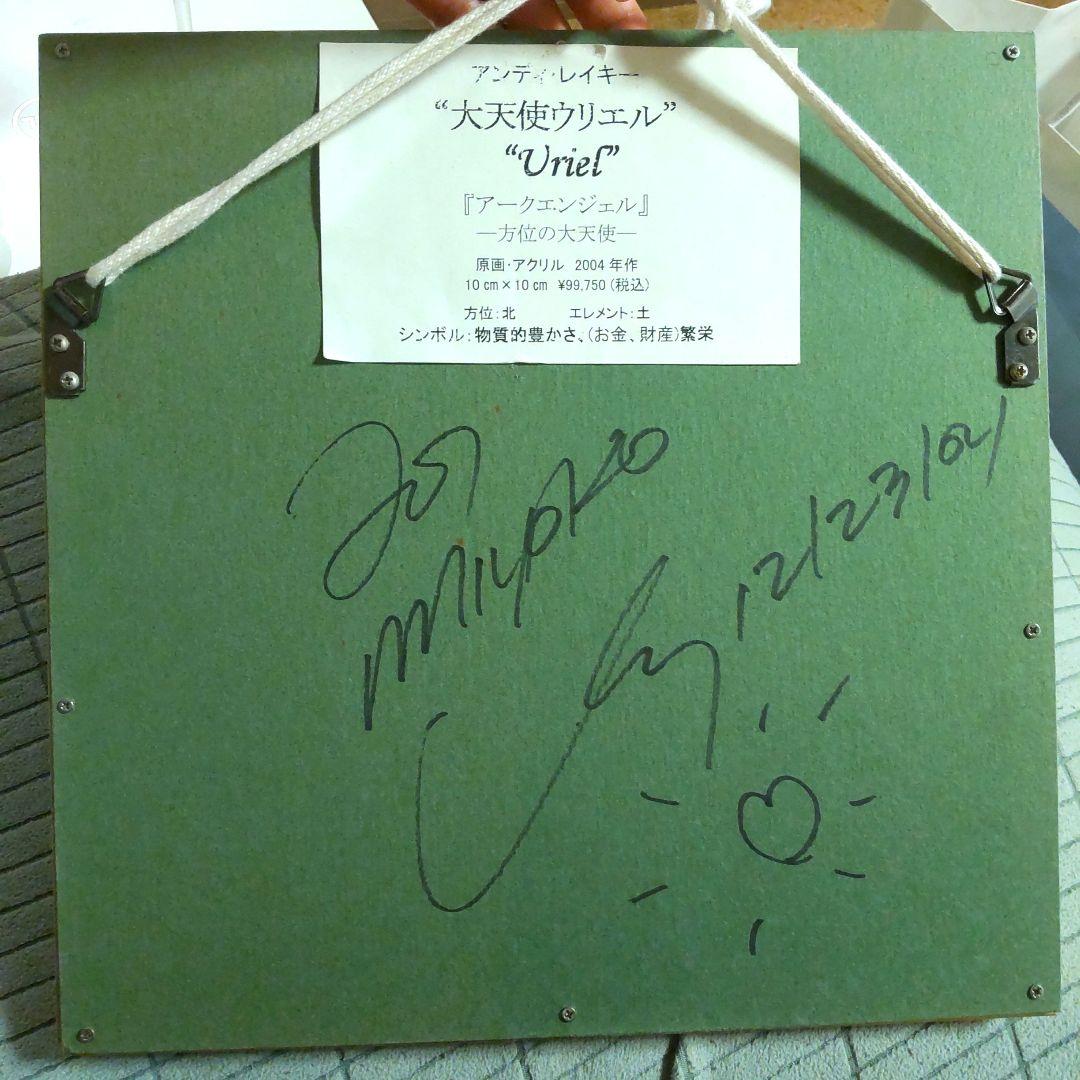 アンディ・レイキー
“大天使ウリエル”
“Uriel”
『アークエンジェル』
―方位の大天使―
原画・アクリル 2004年作
10cm×10cm ¥99,750(税込)
方位:北 エレメント:土
シンボル:物質的豊かさ、(お金、財産)繁栄
For
Miyoko
12/23/04